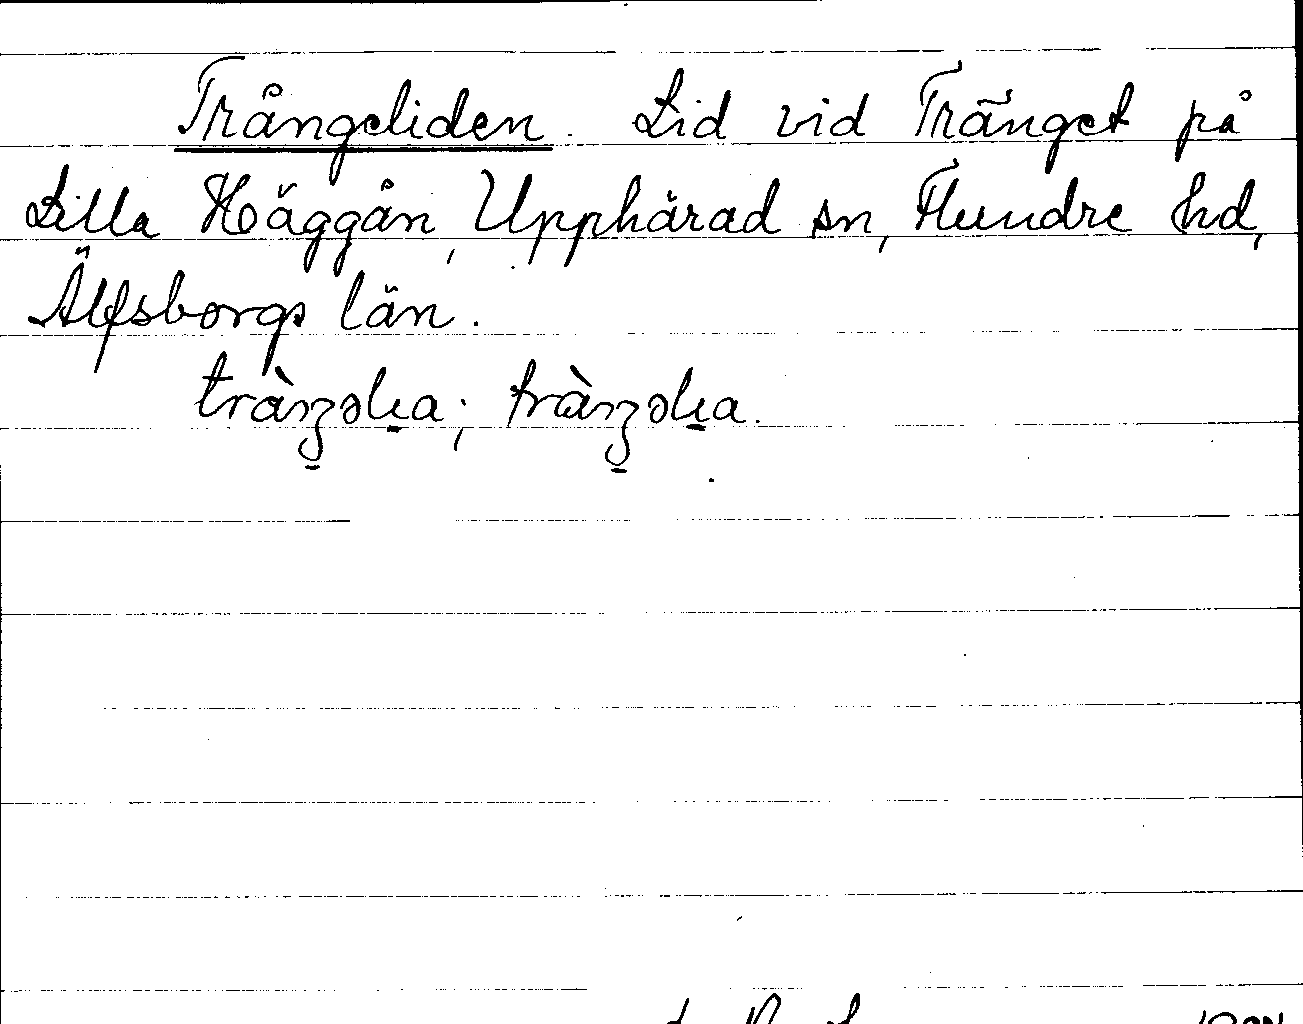 Trångeliden. Lid vid Trånget på
Lilla Häggån, Upphärad sn, Flundre hd,
Älfsborgs län.